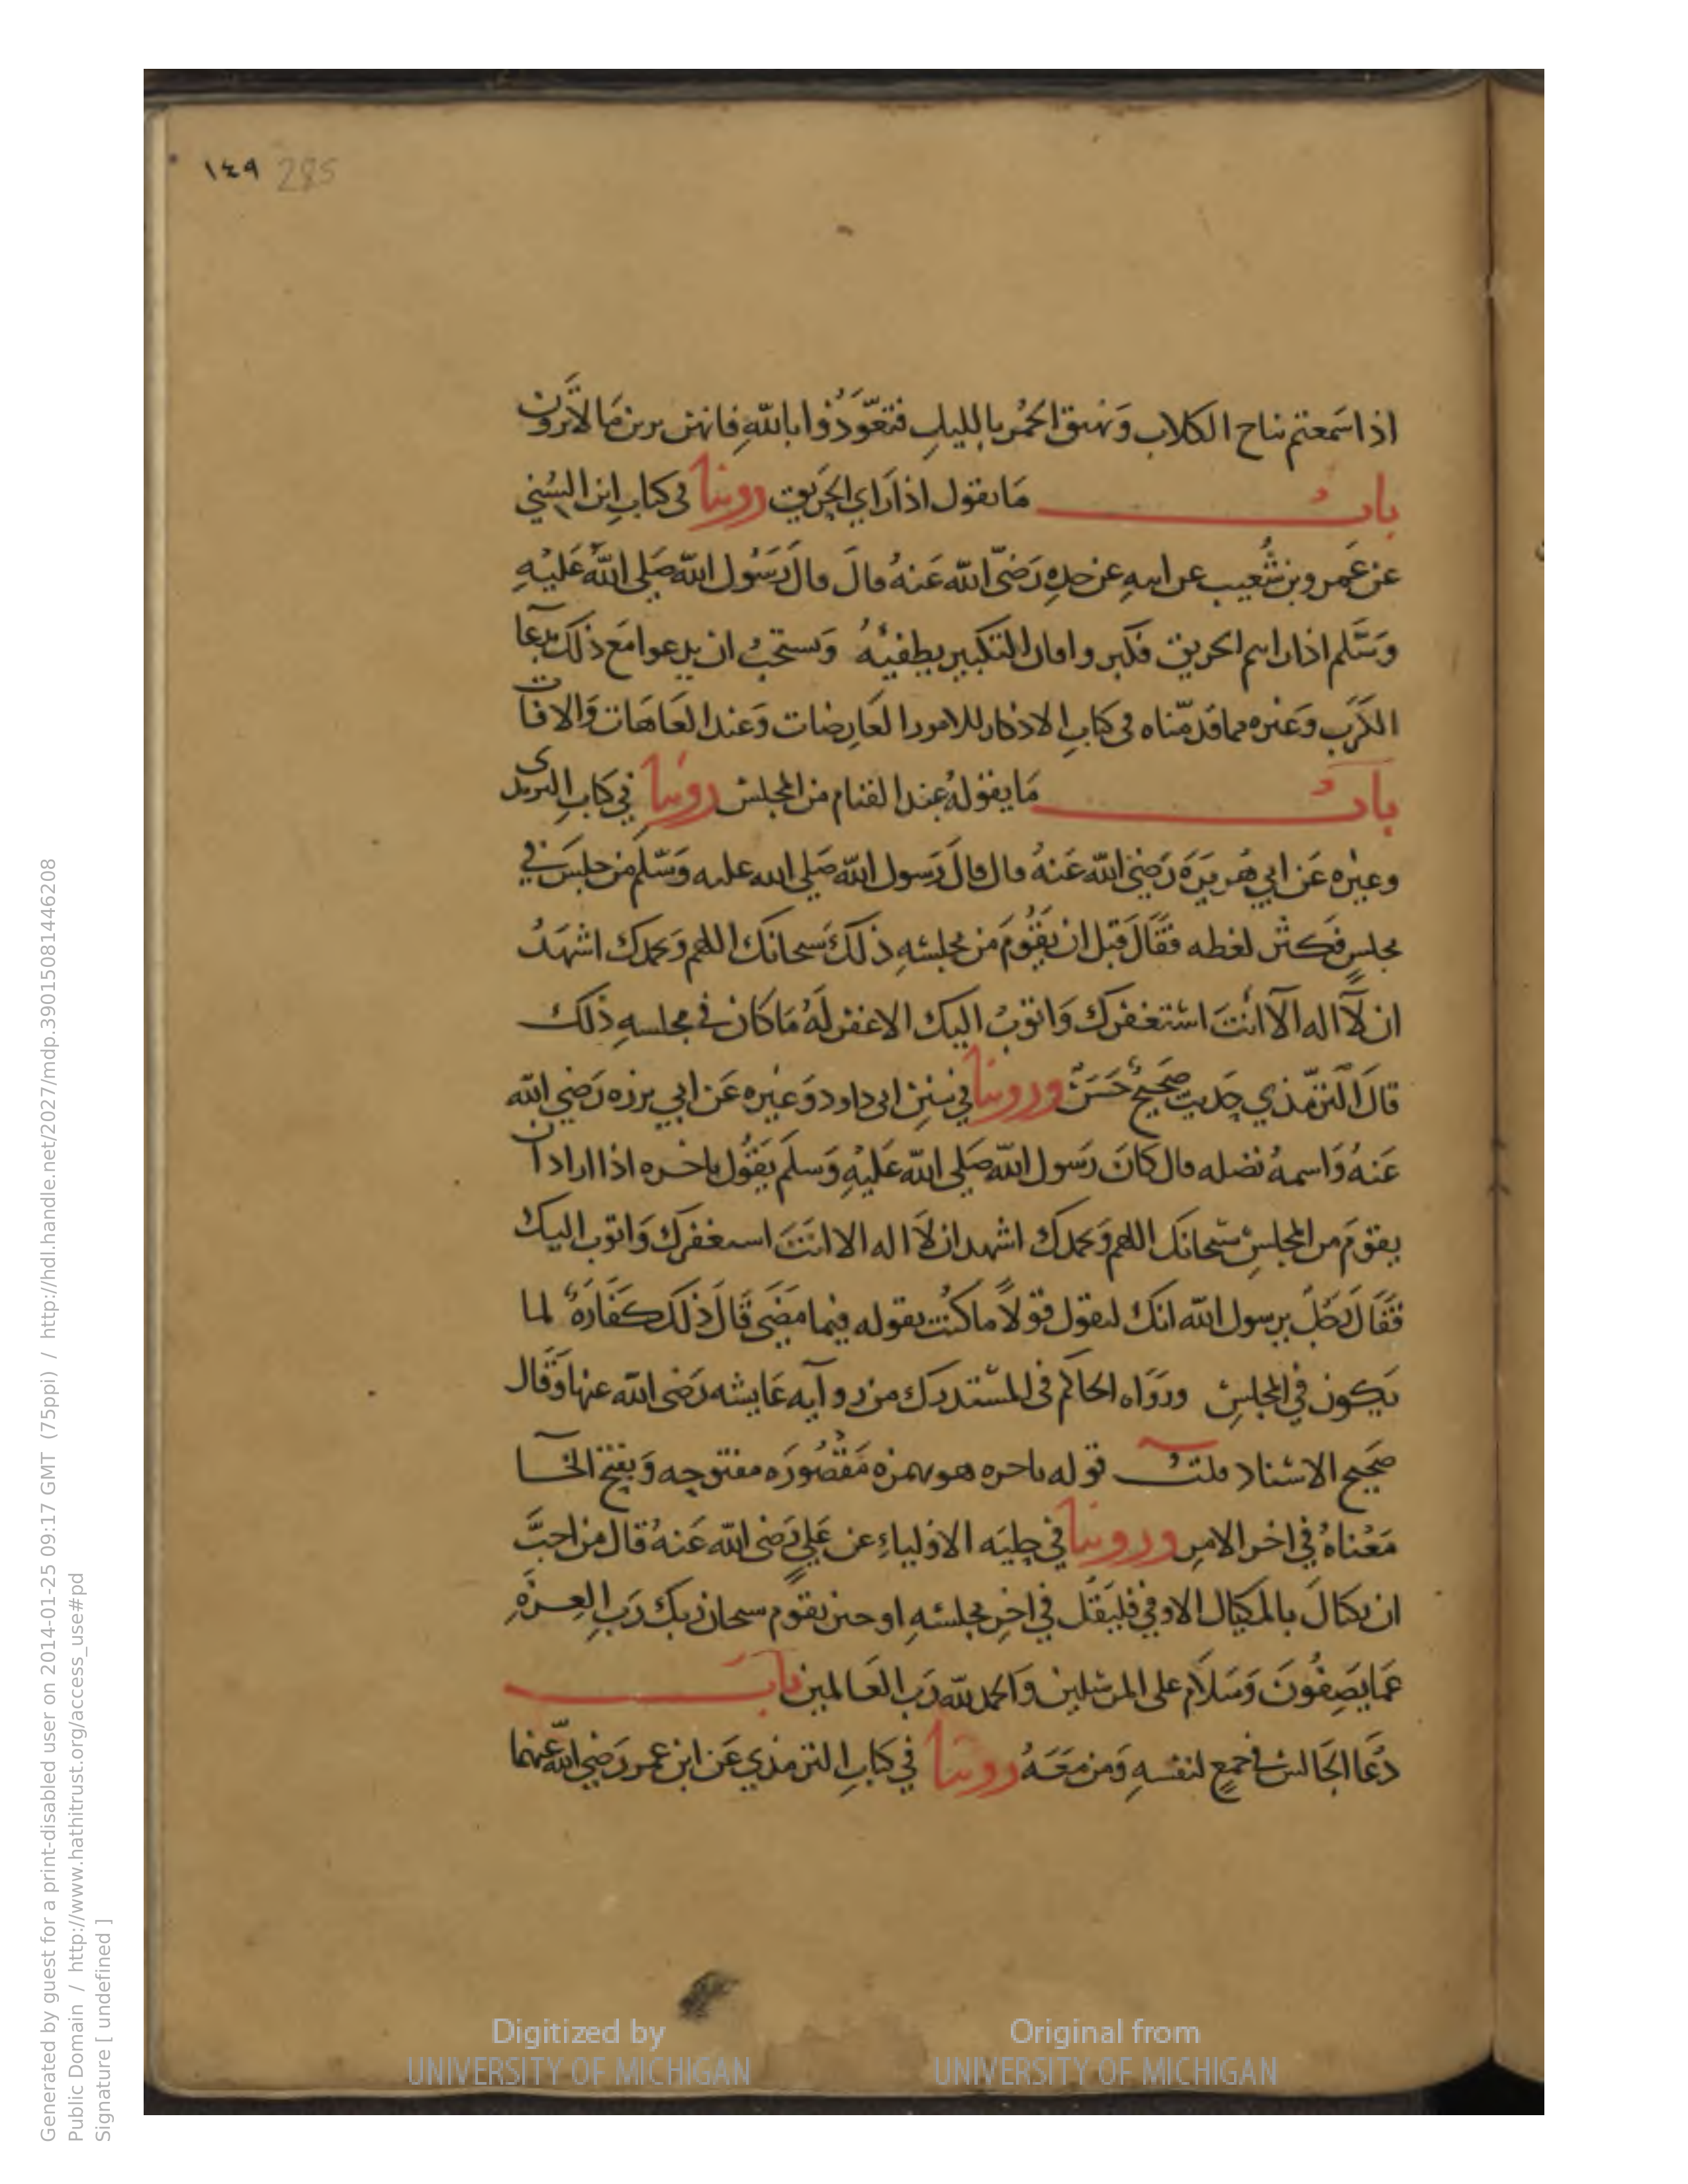 ١٤٩ 285
اذا سَمعتم نباح الكلاب وَنهيق الحُمُر بالليلِ فتعَوَّذُوا بالله فانهن يرين مَا لا تَرَون
بابُ مَا يقول اذا رَاي الحَريق روينا في كتابِ ابن السُني
عن عَمرو بن شُعيب عن ابيهِ عن جدهِ رَضيَ الله عَنهُ قالَ قالَ رَسُول الله صَلي الله عَليْهِ
وَسَّلم اذا رايتم الحريق فكبروا فان التكبير يطفيُه وَيستحبُ ان يدعوا مَع ذلك بدعَا
الكَرب وَغيره مما قدمّناه في كتابِ الاذكار للامور العَارضات وَعند العَاهَات وَالافات
بابُ مَا يقولهُ عند القيام من المجلس روينا في كتابِ الترمدى
وغيره عَن ابي هُريَرَة رَضيَ الله عَنهُ قال قالَ رَسول الله صَلي الله عليه وَسَّلم من جلسَ في
مجلسٍ فكثر لغطه فقَالَ قبل ان يَقُومَ من مجلسهِ ذلكَ سبحانك اللهم وَبحمدك اشهَدُ
ان لآ اله الآ انتَ استغفرك وَاتوبُ اليك الا غفر لَهُ مَا كان في مجلسهِ ذلك
قالَ الترمّذي حَديث صَحيحٌ حَسَنٌ وروينا في سننِ ابى داود وَغيره عَن ابي برزه رَضي الله
عَنهُ وَاسمهُ نضله قال كانَ رَسول الله صَلي الله عَليْهِ وَسَلم يَقُول باخره اذا اراد ان
يقومَ من المجلسِ سُبحانك اللهم وَبحمدك اشهد ان لاَ اله الا انتَ استغفرك وَاتوب اليك
فقَالَ رَجُلٌ يرسول الله انكَ لتقول قولاً ما كنت تقوله فيما مَضَى قَالَ ذلكَ كفارَهٌ لما
يَكون في المجلسِ ورَوَاه الحاكم فى المستدرك من روايه عَايشه رَضى الله عنها وَقال
صَحيح الاسناد قلتُ قوله باخره هو بهمزه مَقصُورَه مفتوحه وَبفتح الخآ
مَعْناهُ في اخر الامرِ وروينا في حِليَه الاوليَاءِ عن عَليٍ رَضى الله عَنهُ قال من احبَّ
ان يكتالَ بالمكيال الاوفي فليَقُل في اخِر مجلسهِ او حين يقوم سبحان ربك رَب العِزهِ
عَما يَصِفُونَ وَسَلاَم على المرسلين وَالحمد لله رَب العَالمين بابَ
دُعَا الجَالس في جمعٍ لنفسهِ وَمن مَعَهُ روينا في كتابِ الترمذي عَن ابن عمر رَضي الله عنهما
Digitized by
UNIVERSITY OF MICHIGAN
Original from
UNIVERSITY OF MICHIGAN
Generated by guest for a print-disabled user on 2014-01-25 09:17 GMT (75ppi) / http://hdl.handle.net/2027/mdp.39015081446208
Public Domain / http://www.hathitrust.org/access_use#pd
Signature [ undefined ]